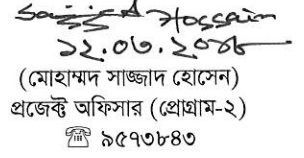 Sajjad Hossain
১২.০৩.২০১৮
(মোহাম্মদ সাজ্জাদ হোসেন)
প্রজেক্ট অফিসার (প্রোগ্রাম-২)
☎ ৯৫৭৩৮৪৩